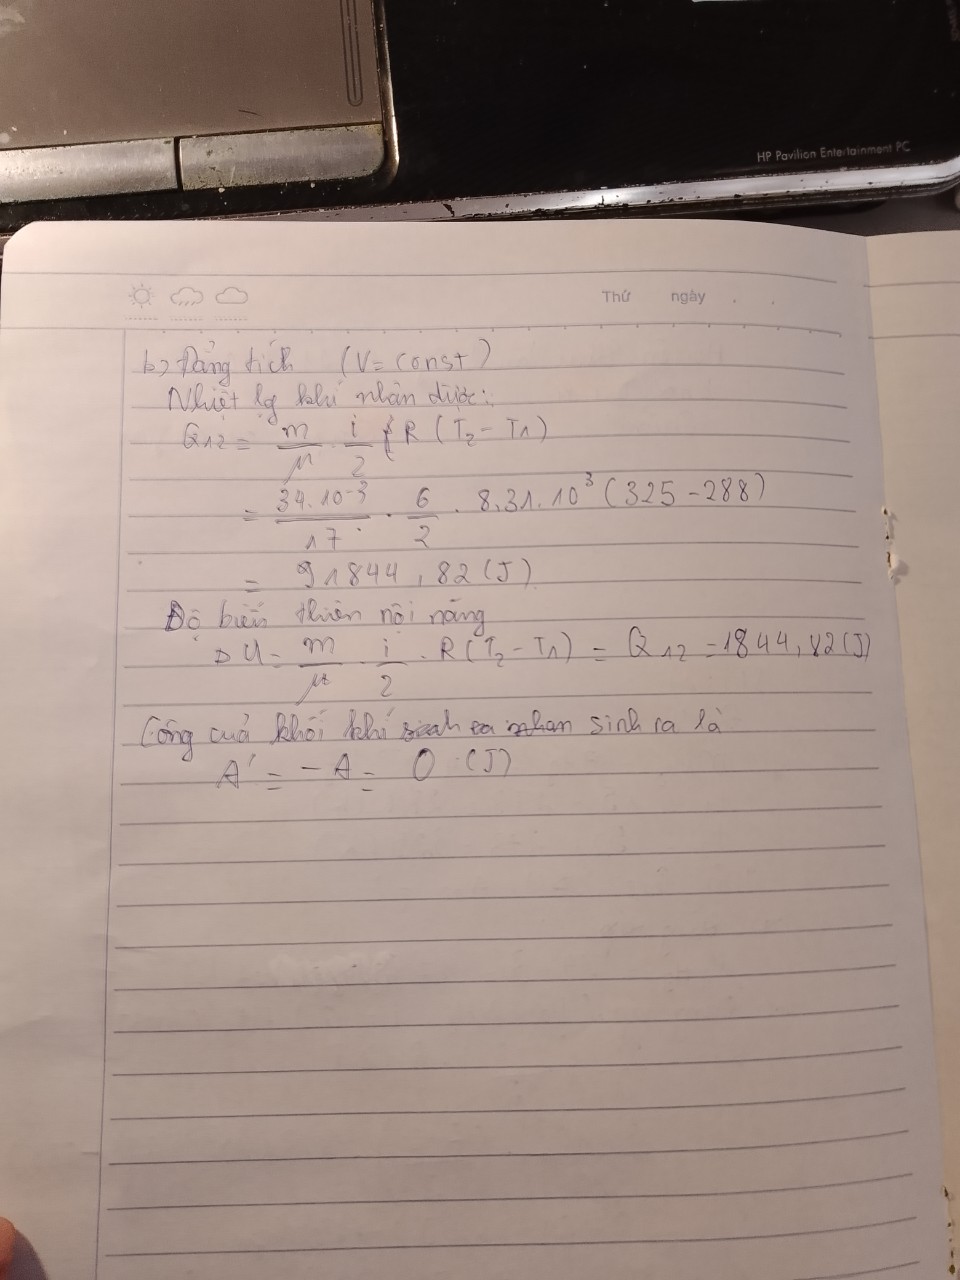 HP Pavilion Entertainment PC
Thứ ngày . .
b) Đẳng tích (V = const)
Nhiệt lg khí nhận được:
Q12 = m/μ . i/2 R (T2 - T1)
= 34.10^-3/17 . 6/2 . 8.31.10^3 (325 - 288)
= 1844,82 (J)
Độ biến thiên nội năng
ΔU = m/μ . i/2 . R (T2 - T1) = Q12 = 1844,82 (J)
Công của khối khí sinh ra là
A' = -A = 0 (J)